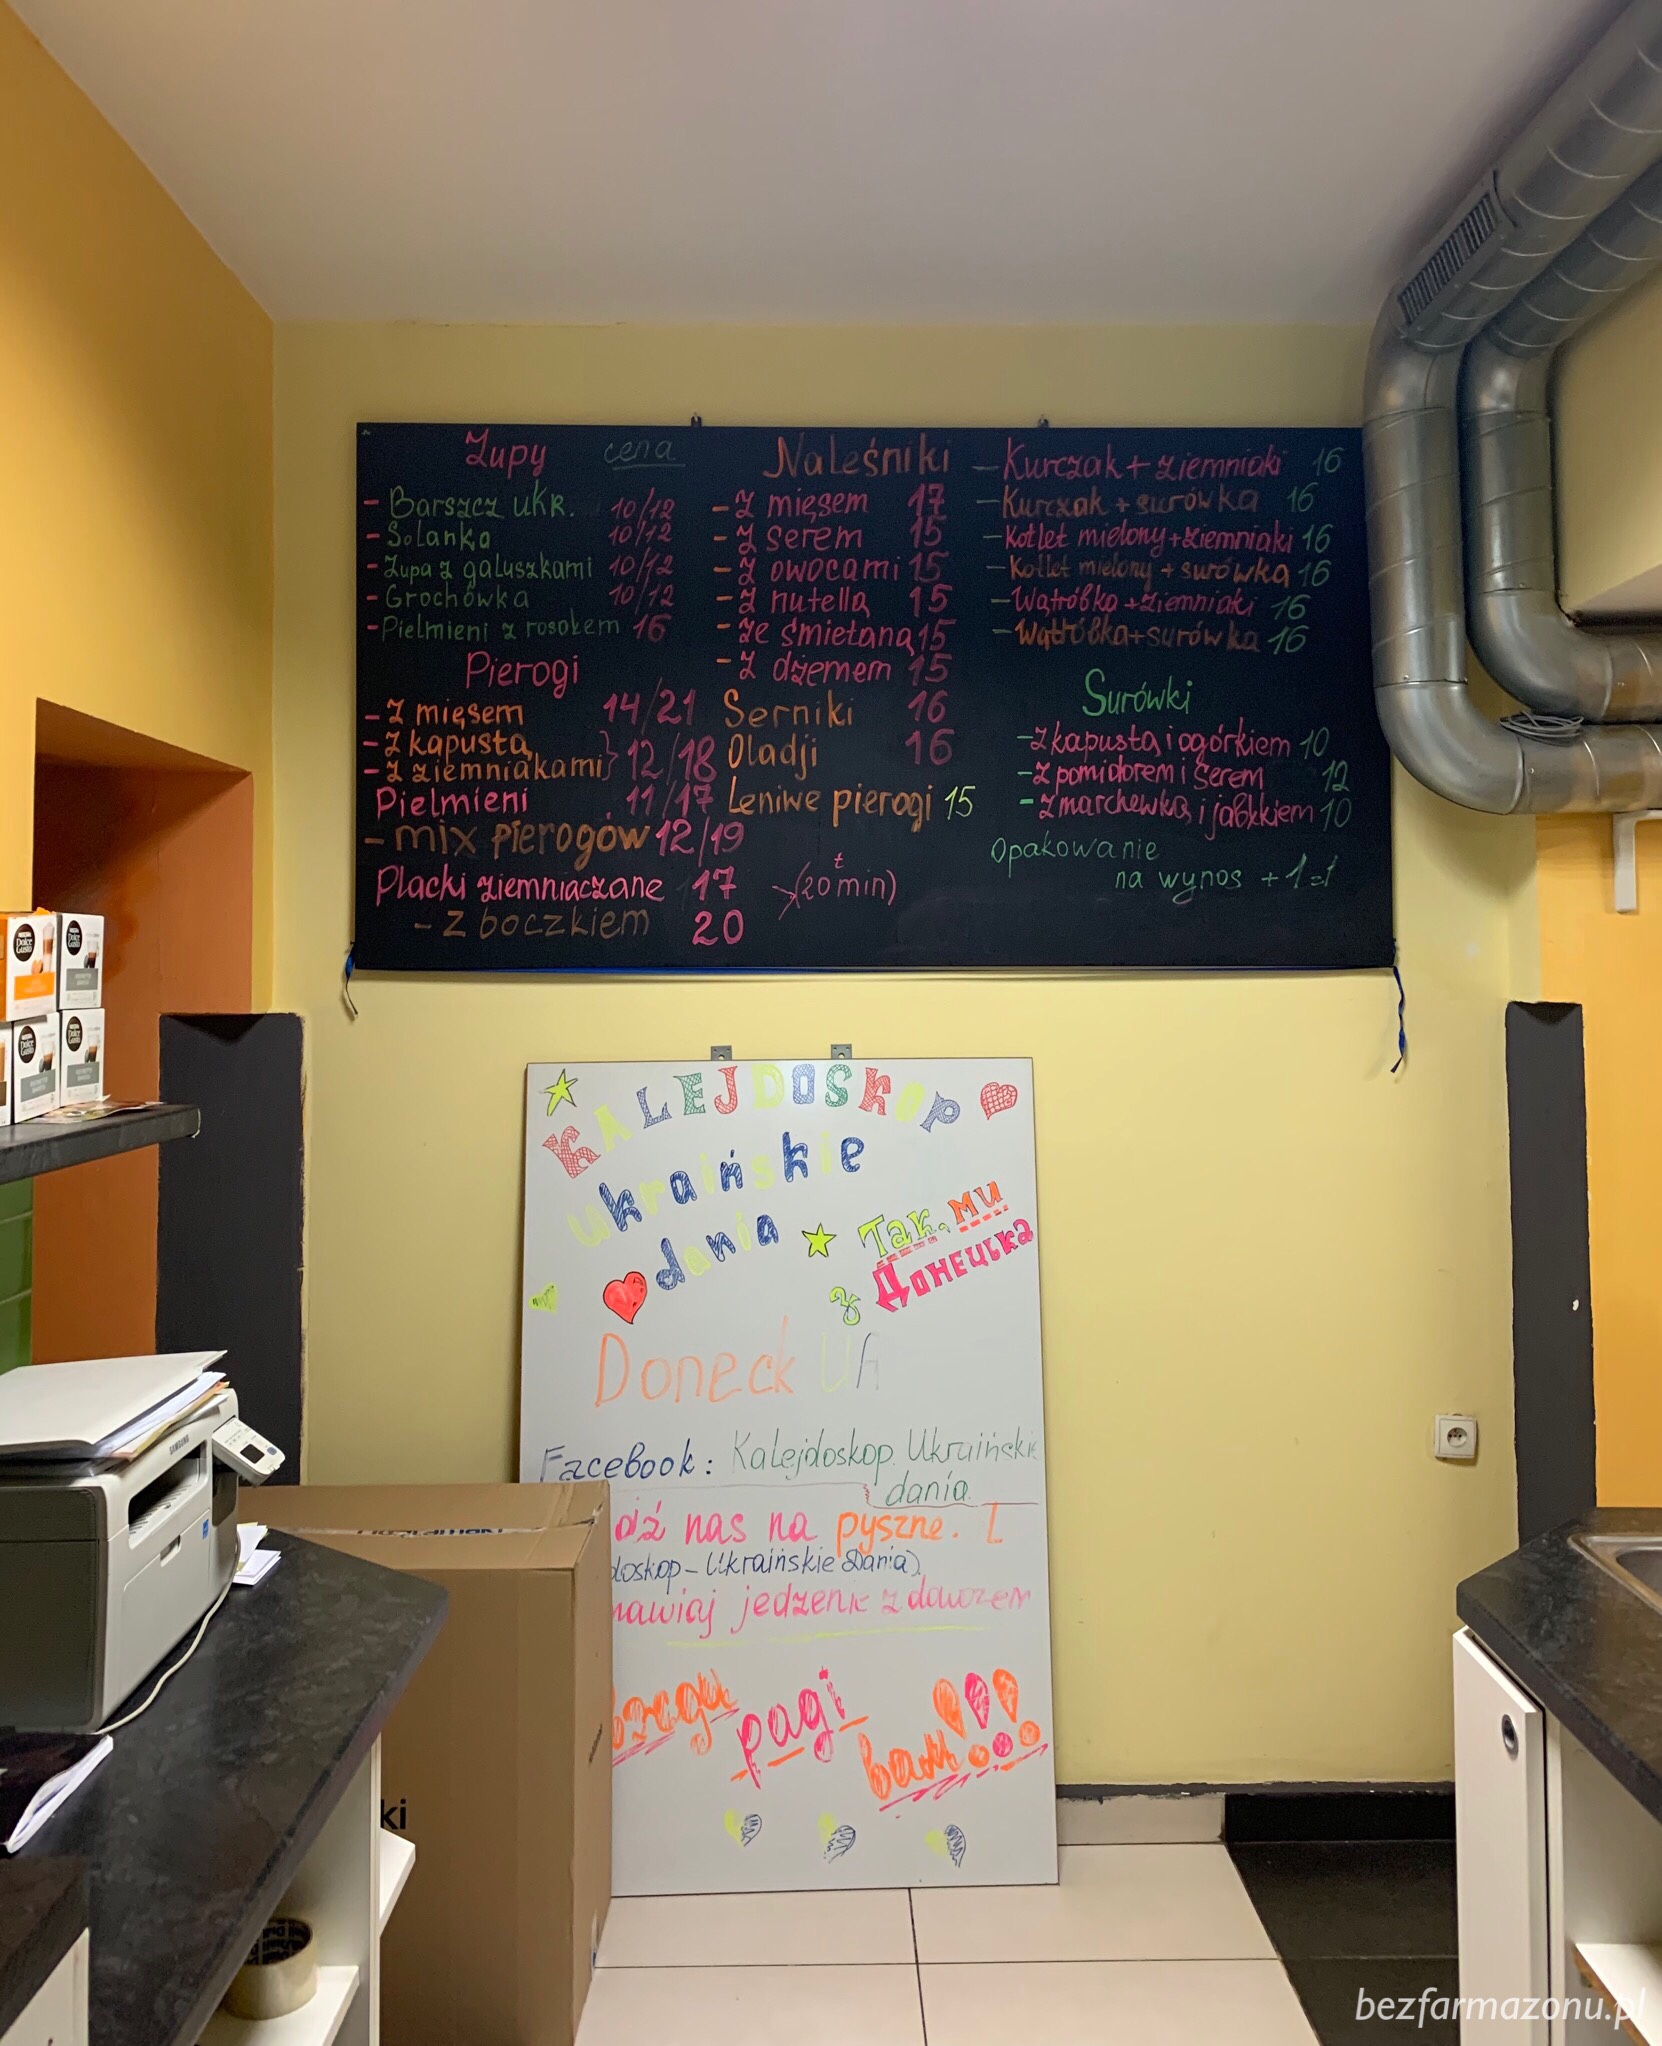 Zupy cena
- Barszcz ukr. 10/12
- Solanka 10/12
- Zupa z galuszkami 10/12
- Grochówka 10/12
- Pielmieni z rosołem 16
Pierogi
- z mięsem 14/21
- z kapustą
- z ziemniakami } 12/18
Pielmieni 11/17
- mix pierogów 12/19
Placki ziemniaczane 17 (20 min)
- z boczkiem 20
Naleśniki
- z mięsem 17
- z serem 15
- z owocami 15
- z nutellą 15
- ze śmietaną 15
- z dżemem 15
Serniki 16
Oladji 16
Leniwe pierogi 15
- Kurczak + ziemniaki 16
- Kurczak + surówka 16
- Kotlet mielony + ziemniaki 16
- Kotlet mielony + surówka 16
- Wątróbka + ziemniaki 16
- Wątróbka + surówka 16
Surówki
- z kapustą i ogórkiem 10
- z pomidorem i serem 12
- z marchewką i jabłkiem 10
Opakowanie
na wynos + 1
KALEJDOSKOP
ukraińskie
dania
Так, ми
з Донецька
Doneck UA
Facebook: Kalejdoskop Ukraińskie
dania
nas na pyszne.
doskop - Ukraińskie Dania)
mawiaj jedzenie z dowozem
pagi
вам!!!
SAMSUNG
NESCAFÉ
Dolce
Gusto
ki
bezfarmazonu.pl